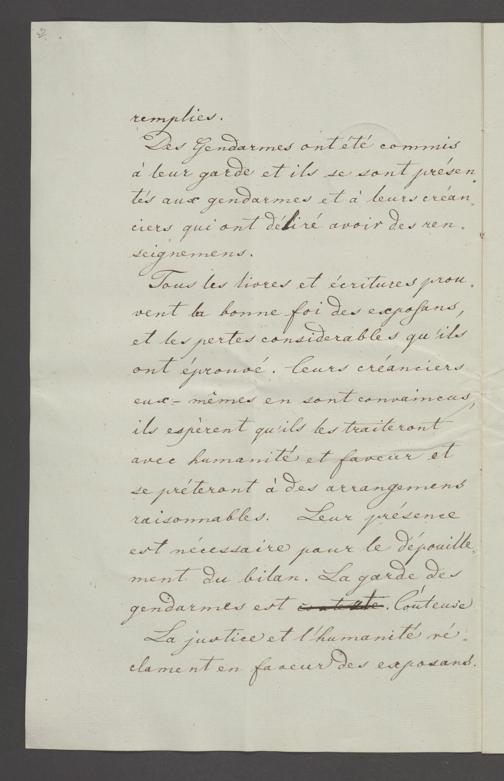 2.
remplies.
Des Gendarmes ont été commis
à leur garde et ils se sont présen-
tés aux gendarmes et à leurs créan-
ciers qui ont désiré avoir des ren-
seignemens.
Tous les livres et écritures prou-
vent la bonne foi des exposans,
et les pertes considerables qu'ils
ont éprouvé. leurs créanciers
eux-mêmes en sont convaincus,
ils espèrent qu'ils les traiteront
avec humanité et faveur et
se prêteront à des arrangemens
raisonnables. Leur présence
est nécessaire pour le dépouille-
ment du bilan. La garde des
gendarmes est . Coûteuse
La justice et l'humanité ré-
clament en faveur des exposans.